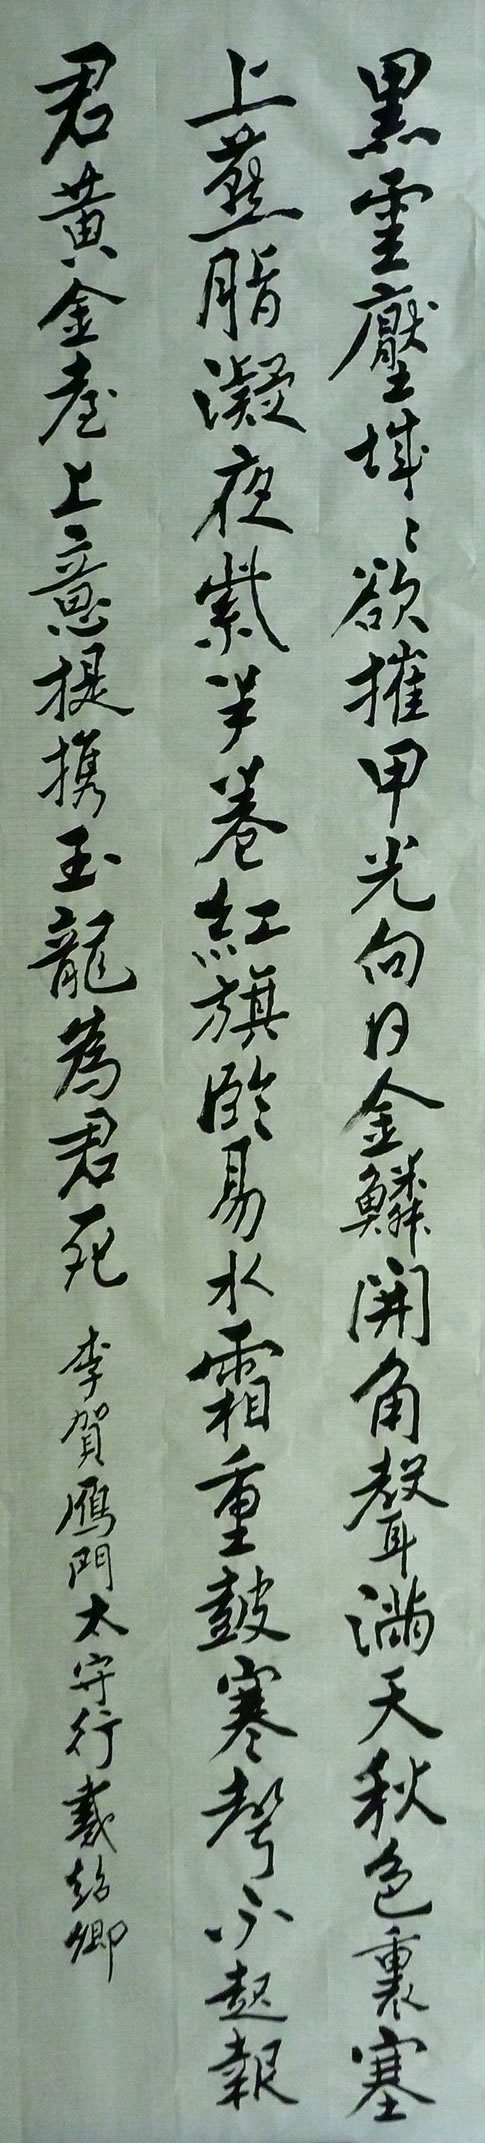 黑雲壓城〻欲摧甲光向日金鱗開角聲滿天秋色裏塞
上燕脂凝夜紫半卷紅旗臨易水霜重鼓寒聲不起報
君黃金臺上意提携玉龍為君死 李賀雁門太守行 戴